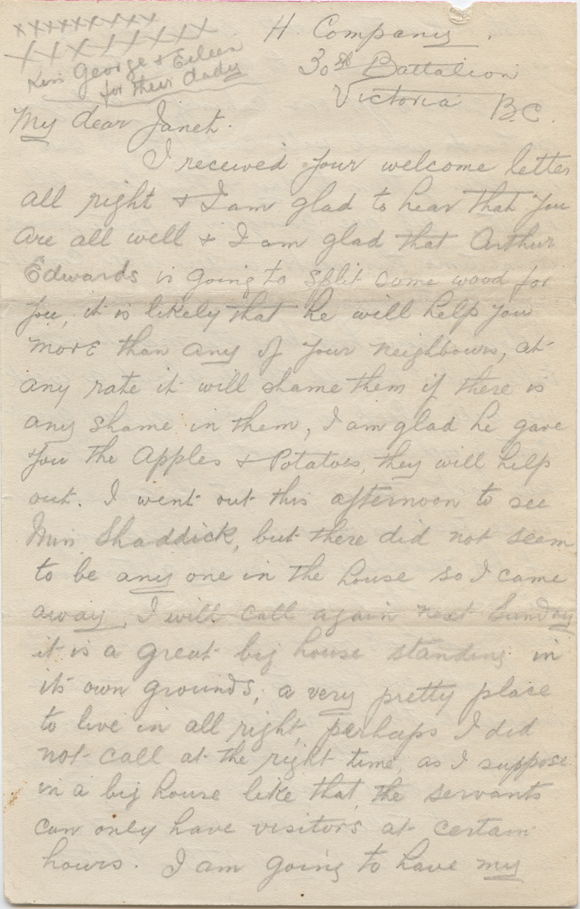 xxxxxxxxx
xxxxxxxxx
Kiss George & Eileen
for their dady
H. Company.
30th Battalion
Victoria B.C.
My dear Janet.
I received your welcome letter
all right & I am glad to hear that you
are all well & I am glad that Arthur
Edwards is going to split some wood for
you, it is likely that he will help you
more than any of your neighbours, at
any rate it will shame them if there is
any shame in them, I am glad he gave
you the Apples & Potatoes, they will help
out. I went out this afternoon to see
Miss Shaddick, but there did not seem
to be any one in the house so I came
away, I will call again next Sunday
it is a great big house standing in
its own grounds, a very pretty place
to live in all right, perhaps I did
not call at the right time, as I suppose
in a big house like that, the servants
can only have visitors at certain
hours. I am going to have my